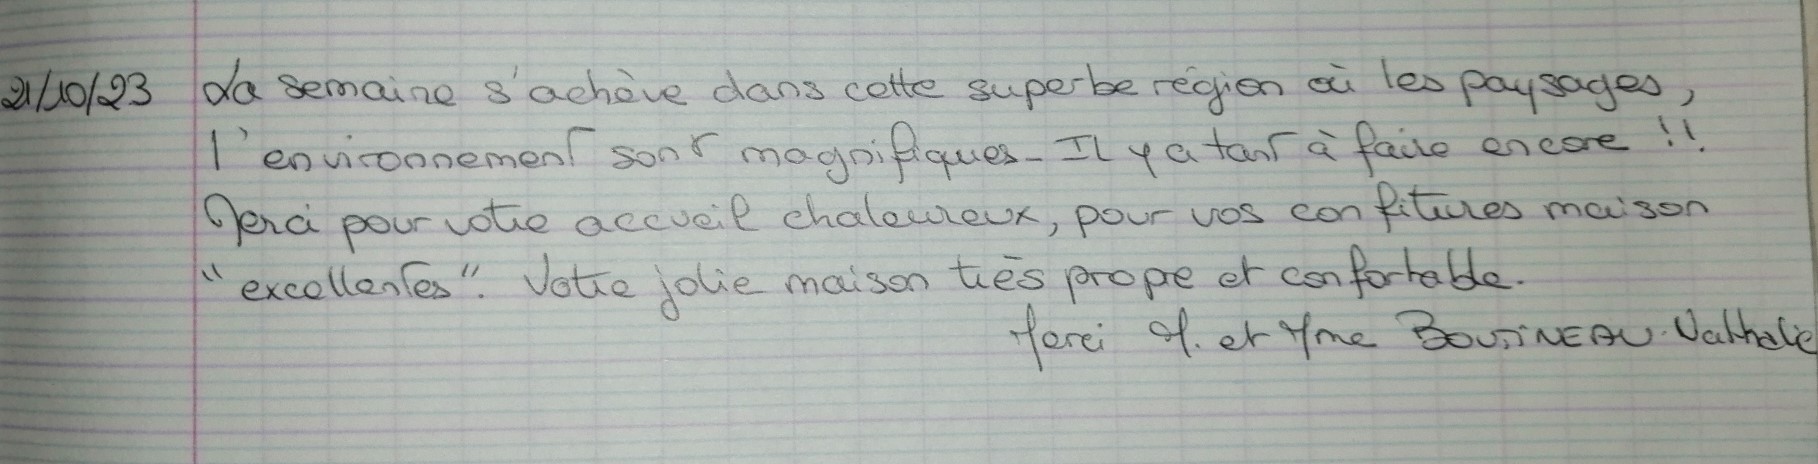 21/10/23 La semaine s'achève dans cette superbe région où les paysages,
l'environnement sont magnifiques. Il y a tant à faire encore !!
Merci pour votre accueil chaleureux, pour vos confitures maison
"excellentes". Votre jolie maison très prope et confortable.
Merci M. et Mme Nathalie